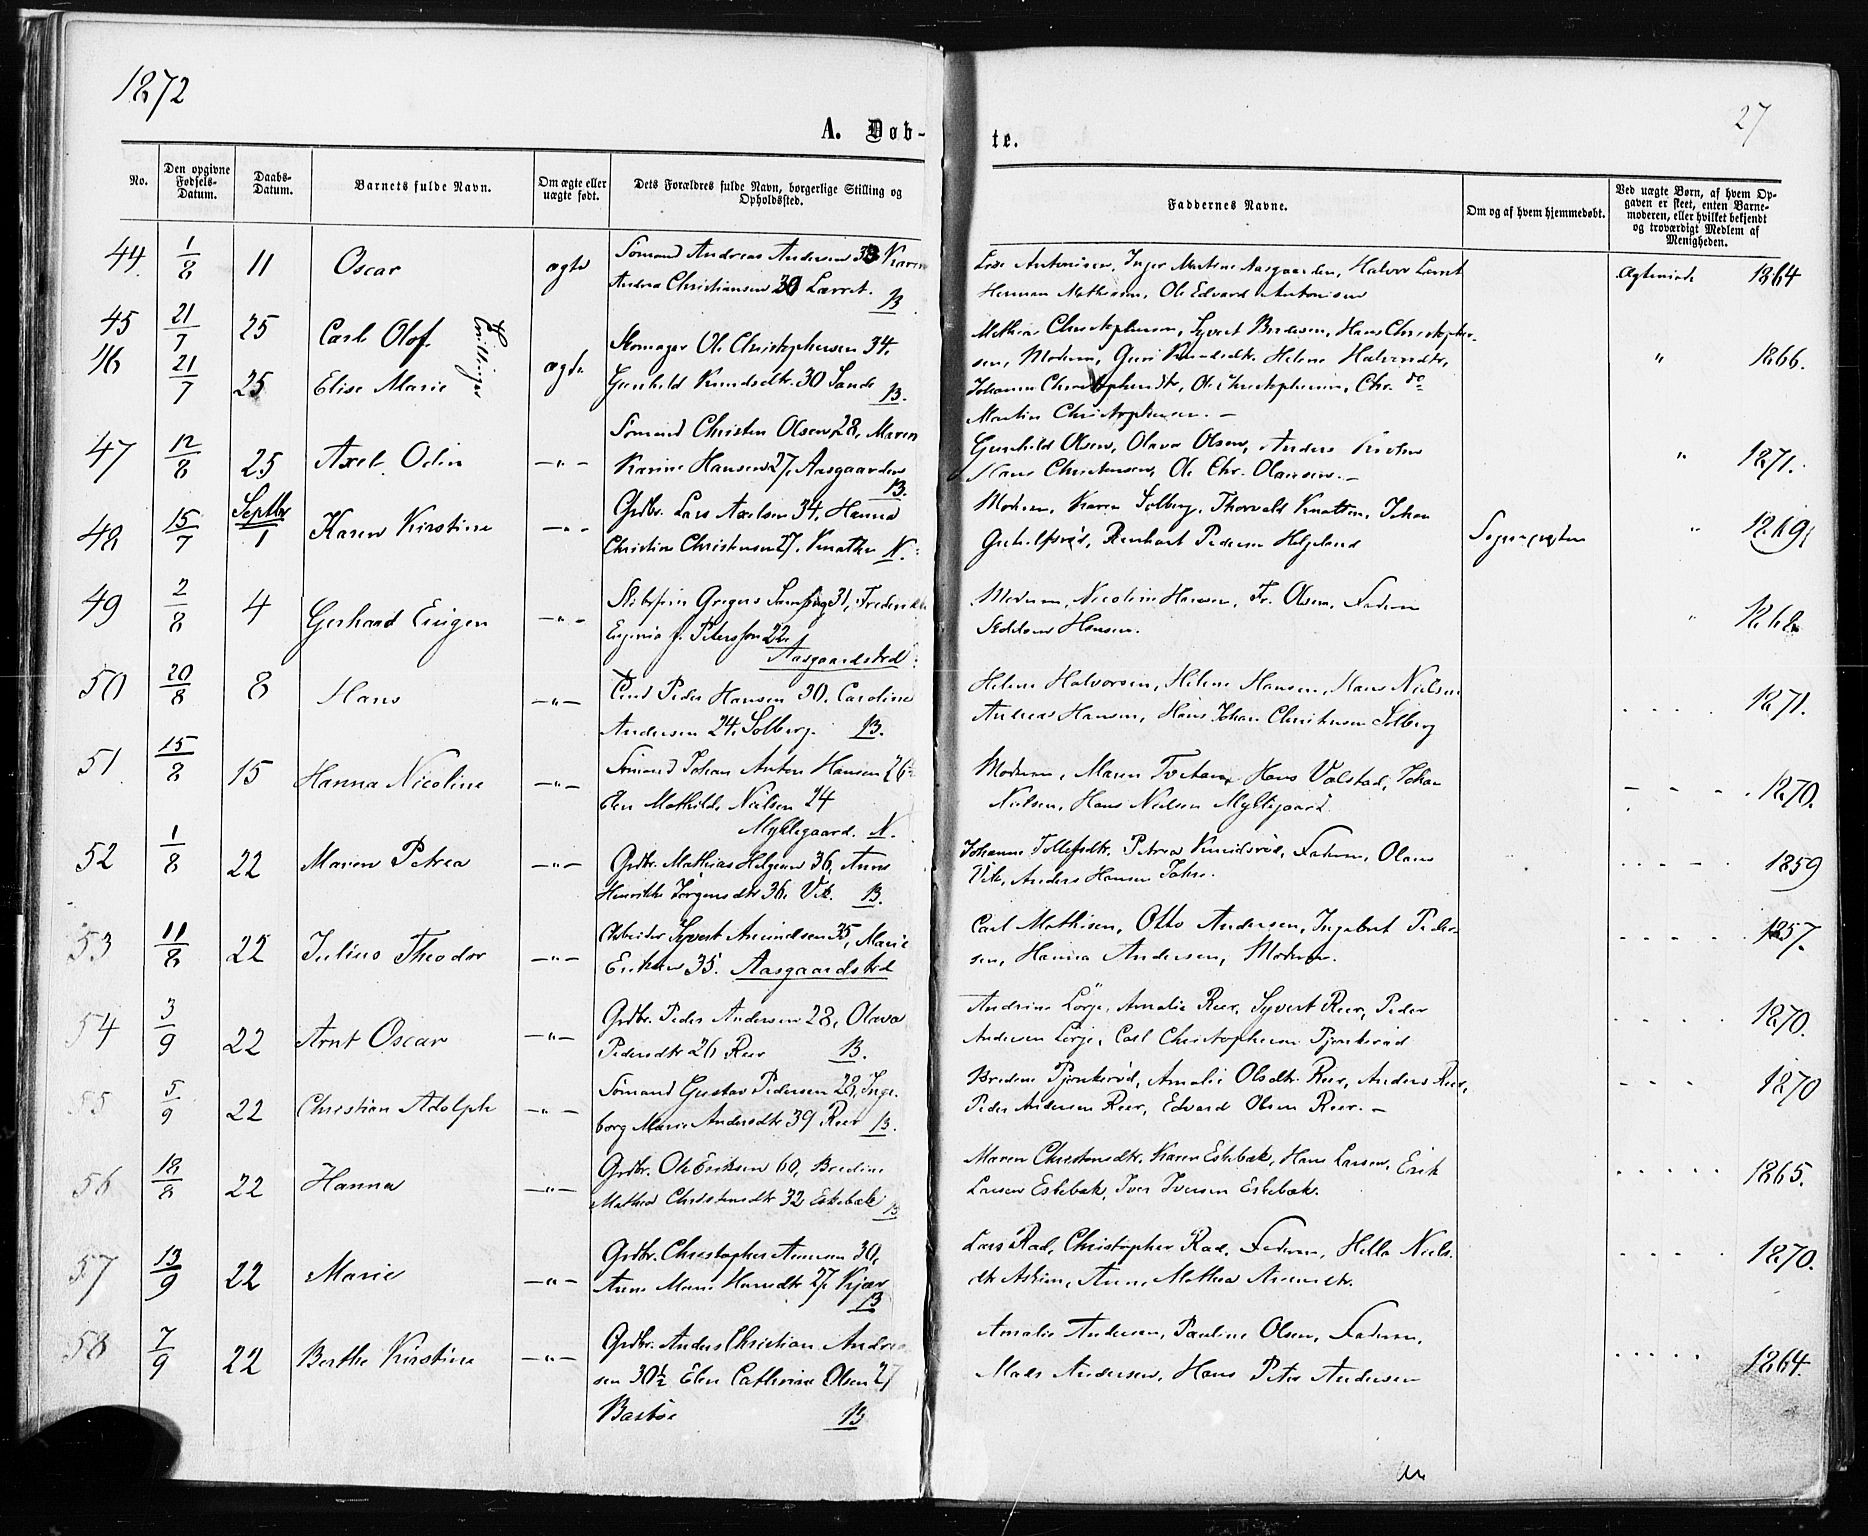 1872
27
A. Døb-
te.
No.
Den opgivne Fødsels-Datum.
Daabs-Datum.
Barnets fulde Navn.
Om ægte eller uægte født.
Dets Forældres fulde Navn, borgerlige Stilling og Opholdssted.
Faddernes Navne.
Om og af hvem hjemmedøbt.
Ved uægte Børn, af hvem Opgaven er skeet, enten Barnemoderen, eller hvilket bekjendt og troværdigt Medlem af Menigheden.
44 1/8 11 Oscar ægte
Sømand Andreas Andersen 33 Karen
Andrea Christiansen 30 Lærret. B
Antonisen, Inger Martine Aasgaarden, Halvor
Herman Mathisen, Ole Edvard Antonisen
Ægteviede 1864
45 21/7 25 Carl Olof Tvillinger
46 21/7 25 Elise Marie ægte
Skomager Ole Christophersen 34,
Gunhild Knudsdtr. 30 Sande B.
Mathias Christophersen, Syvert Bredesen, Hans Christopher-
sen, Moderen, Guri Knudsdtr. Helene Halvorsdtr,
Johanne Christophersdtr, Ole Christophersen, Chr. do
Martin Christophersen. —
" 1866.
47 12/8 25 Axel Odin —"—
Sømand Christen Olsen 28, Maren
Karine Hansen 27, Aasgaarden
B.
Gunhild Olsen, Olava Olsen, Anders
Hans Christensen, Ole Chr. Olausen. —
" 1871.
48 15/7 Septbr 1 Karen Kirstine —"—
Grdbr. Lars Axelsen 34, Hanna
Christine Christensen 27. Knatten N.
Moderen, Karen Solberg, Thorvald Knatten, Johan
Gretelfsrød, Reinhart Pedersen Helgeland
Sognepresten
" 1869
49 2/8 4 Gerhard Eugen —"—
Gregers 31, Frederikke
Eugenia f. Peterssen 22.
Aasgaardstrd
Moderen, Nicoline Hansen, Fr. Olsen, Faderen
Hansen.
" 1868
50 20/8 8 Hans —"—
Peder Hansen 30, Caroline
Andersen 24, Solberg. B.
Helene Halvorsen, Helene Hansen, Hans Nielsen
Andreas Hansen, Hans Johan Christensen Solberg
1871.
51 15/8 15 Hanna Nicoline —"—
Sømand Johan Anton Hansen 26½
Elen Mathilde Nielsen 24
Myklegaard. N.
Moderen, Maren Tvetan, Hans Valstad, Johan
Nielsen, Hans Nielsen Myklegaard
1870.
52 1/8 22 Maren Petrea —"—
Grdbr. Mathias Helgesen 36, Anne
Henrikke Jørgensdtr 36, Vik. B.
Johanne Tollefsdtr. Petrea Knudsrød, Faderen, Olaus
Vik, Anders Hansen Jahre.
1859
53 11/8 22 Julius Theodor —"—
Arbeider Syvert Amundsen 35, Marie
Eriksen 35. Aasgaardstrd
Carl Mathisen, Otto Andersen, Ingebret Peder-
sen, Hanna Andersen, Moderen.
1857.
54 3/9 22 Arnt Oscar —"—
Grdbr. Peder Andersen 28, Olava
Pedersdtr 26 Røer B.
Andrine Lørje, Amalie Røer, Syvert Røer, Peder
Andersen Lørje, Carl Christophersen Pjonkerød
1870.
55 5/9 22 Christian Adolph —"—
Sømand Gustav Pedersen 28, Inge-
borg Marie Andersdtr 39 Røer B.
Bredine Pjonkerød, Amalie Olsdtr. Røer, Anders Røer,
Peder Andersen Røer, Edvard Olsen Røer. —
1870
56 18/8 22 Hanna —"—
Grdbr. Ole Eriksen 60, Bredine
Mathea Christensdtr 32 Eskebæk B
Maren Christensdtr. Karen Eskebæk, Hans Larsen, Erik
Larsen Eskebæk, Iver Iversen Eskebæk.
1865.
57 13/9 22 Marie —"—
Grdbr. Christopher 30,
Anne Marie Hansdtr 27, Kjær
B
Lars Rad, Christopher Rad, Faderen, Hella Niels-
dtr Askim, Anne Mathea
1870.
58 7/9 22 Berthe Kirstine —"—
Grdbr. Anders Christian Andrea-
sen 30½ Elen Cathrine Olsen 27
Bastøe B
Amalie Andersen, Pauline Olsen, Faderen,
Mads Andersen, Hans Peter Andersen
1864.